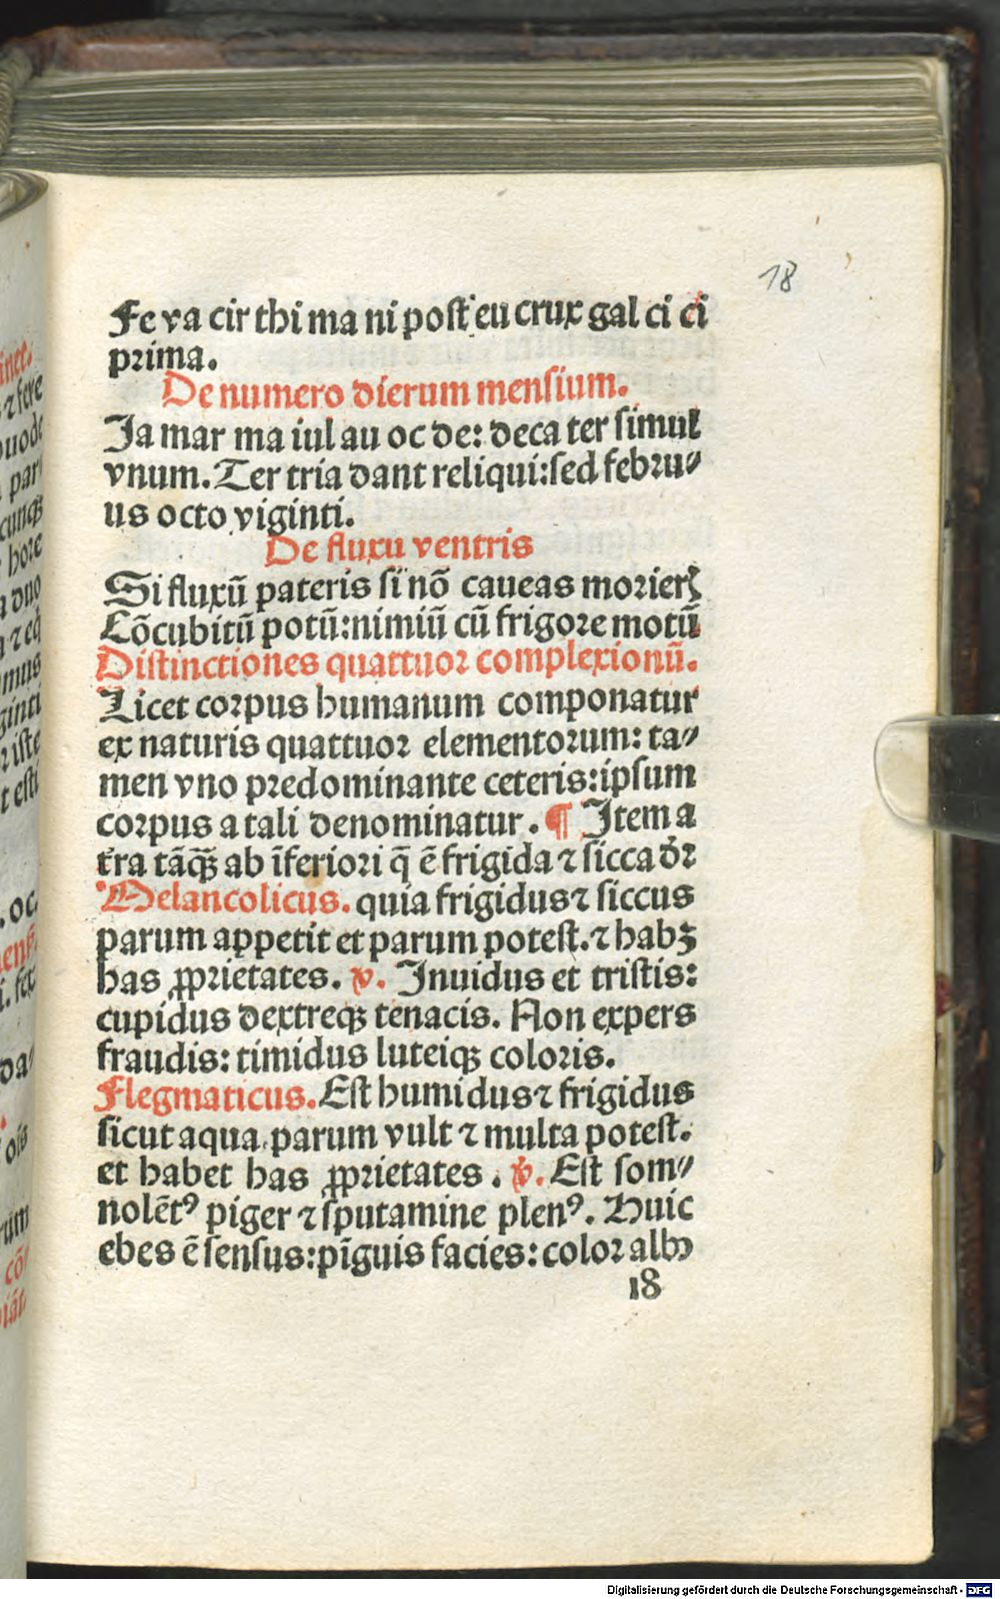 18
Fe va cir thi ma ni post eu crux gal ci ci
prima.
De numero dierum mensium.
Ja mar ma iul au oc de: deca ter simul
vnum. Ter tria dant reliqui: sed febru⸗
us octo viginti.
De fluxu ventris
Si fluxū pateris si nō caueas morierꝭ
Cōcubitū potū: nimiū cū frigore motū
Distinctiones quattuor complexionū.
Licet corpus humanum componatur
ex naturis quattuor elementorum: ta⸗
men vno predominante ceteris: ipsum
corpus a tali denominatur. ¶ Item a
t̄ra tāꝙ̄ ab īferiori q̄ ē frigida ⁊ sicca dr̄
Melancolicus. quia frigidus ⁊ siccus
parum appetit et parum potest. ⁊ habꝫ
has ꝓprietates. v. Inuidus et tristis:
cupidus dextreqꝫ tenacis. Non expers
fraudis: timidus luteiqꝫ coloris.
Flegmaticus. Est humidus ⁊ frigidus
sicut aqua. parum vult ⁊ multa potest.
et habet has ꝓprietates. v. Est som⸗
nolētꝰ piger ⁊ sputamine plenꝰ. Huic
ebes ē sensus: pīguis facies: color albꝰ
18
inet.
⁊ fere
quode
par
cunqꝫ
hore
duo
mus
ginti
iste
t esti
. oc
mens
Digitalisierung gefördert durch die Deutsche Forschungsgemeinschaft - DFG